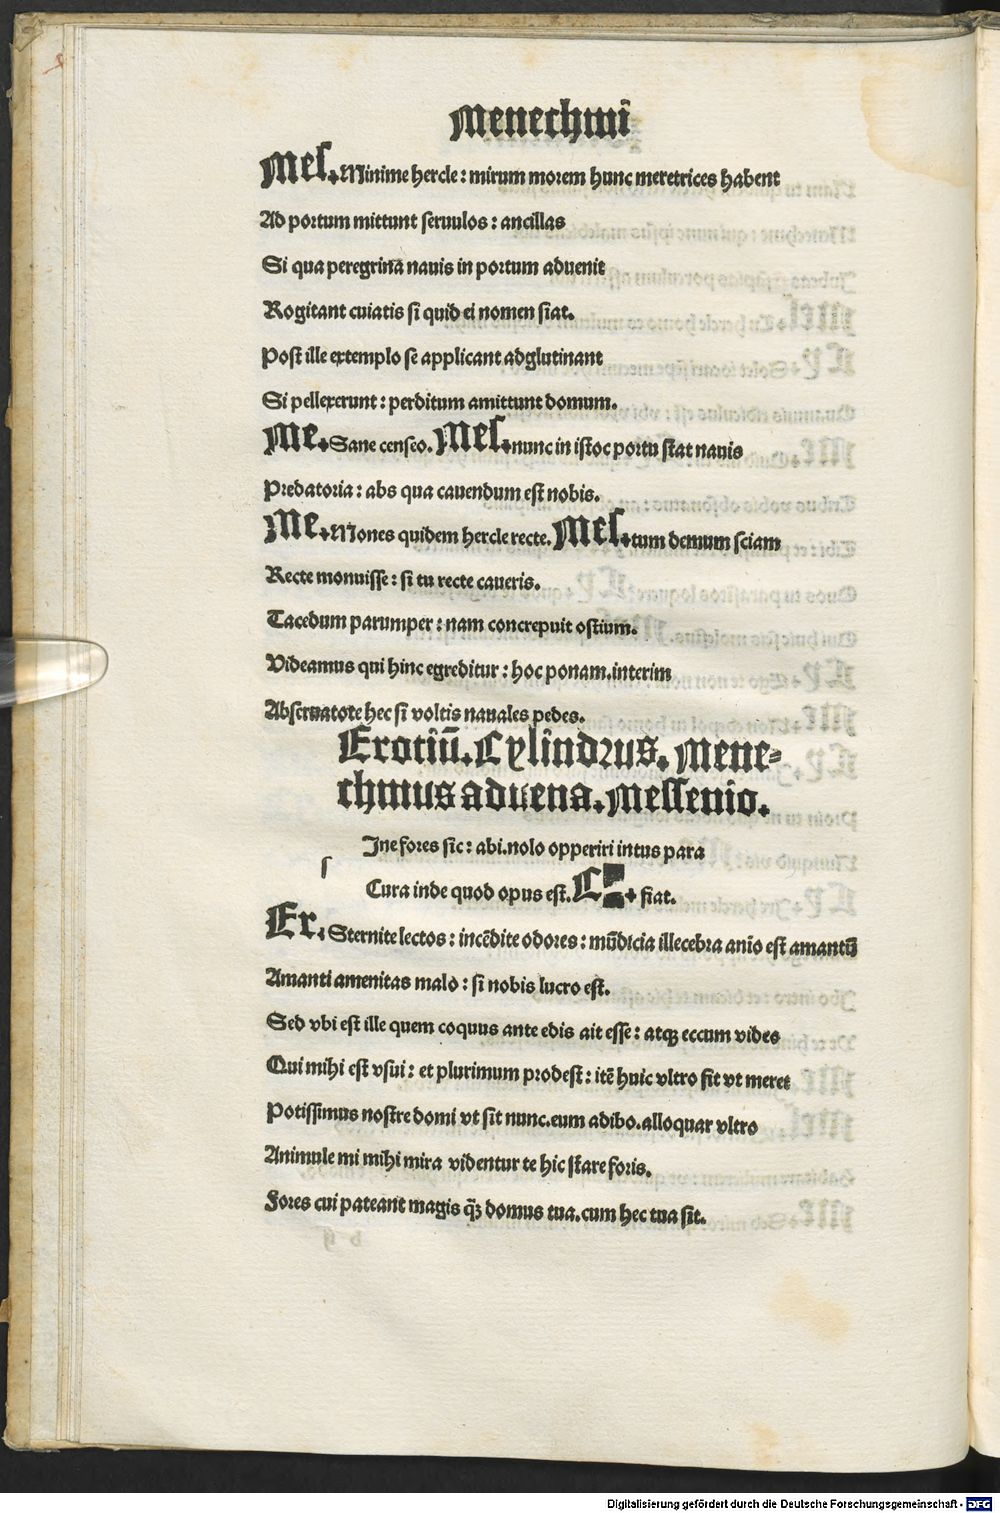 Menechmi
Mes. Minime hercle: mirum morem hunc meretrices habent
Ad portum mittunt seruulos: ancillas
Si qua peregrina nauis in portum aduenit
Rogitant cuiatis si quid ei nomen siat.
Post ille extemplo se applicant adglutinant
Si pellexerunt: perditum amittunt domum.
Me. Sane censeo. Mes. nunc in istoc portu stat nauis
Predatoria: abs qua cauendum est nobis.
Me. Mones quidem hercle recte. Mes. tum demum sciam
Recte monuisse: si tu recte caueris.
Tacedum parumper: nam concrepuit ostium.
Videamus qui hinc egreditur: hoc ponam.interim
Abseruatote hec si voltis nauales pedes.
Erotiū. Cylindrus. Mene-
chmus aduena. Messenio.
Ine fores sic: abi.nolo opperiri intus para
s
Cura inde quod opus est. C . fiat.
Er. Sternite lectos: incēdite odores: mūdicia illecebra anīo est amantū
Amanti amenitas malo: si nobis lucro est.
Sed vbi est ille quem coquus ante edis ait esse: atqꝫ eccum vides
Qui mihi est vsui: et plurimum prodest: itē huic vltro fit vt meret
Potissimus nostre domi vt sit nunc.eum adibo.alloquar vltro
Animule mi mihi mira videntur te hic stare foris.
Fores cui pateant magis qꝫ̄ domus tua.cum hec tua sit.
Digitalisierung gefördert durch die Deutsche Forschungsgemeinschaft - DFG